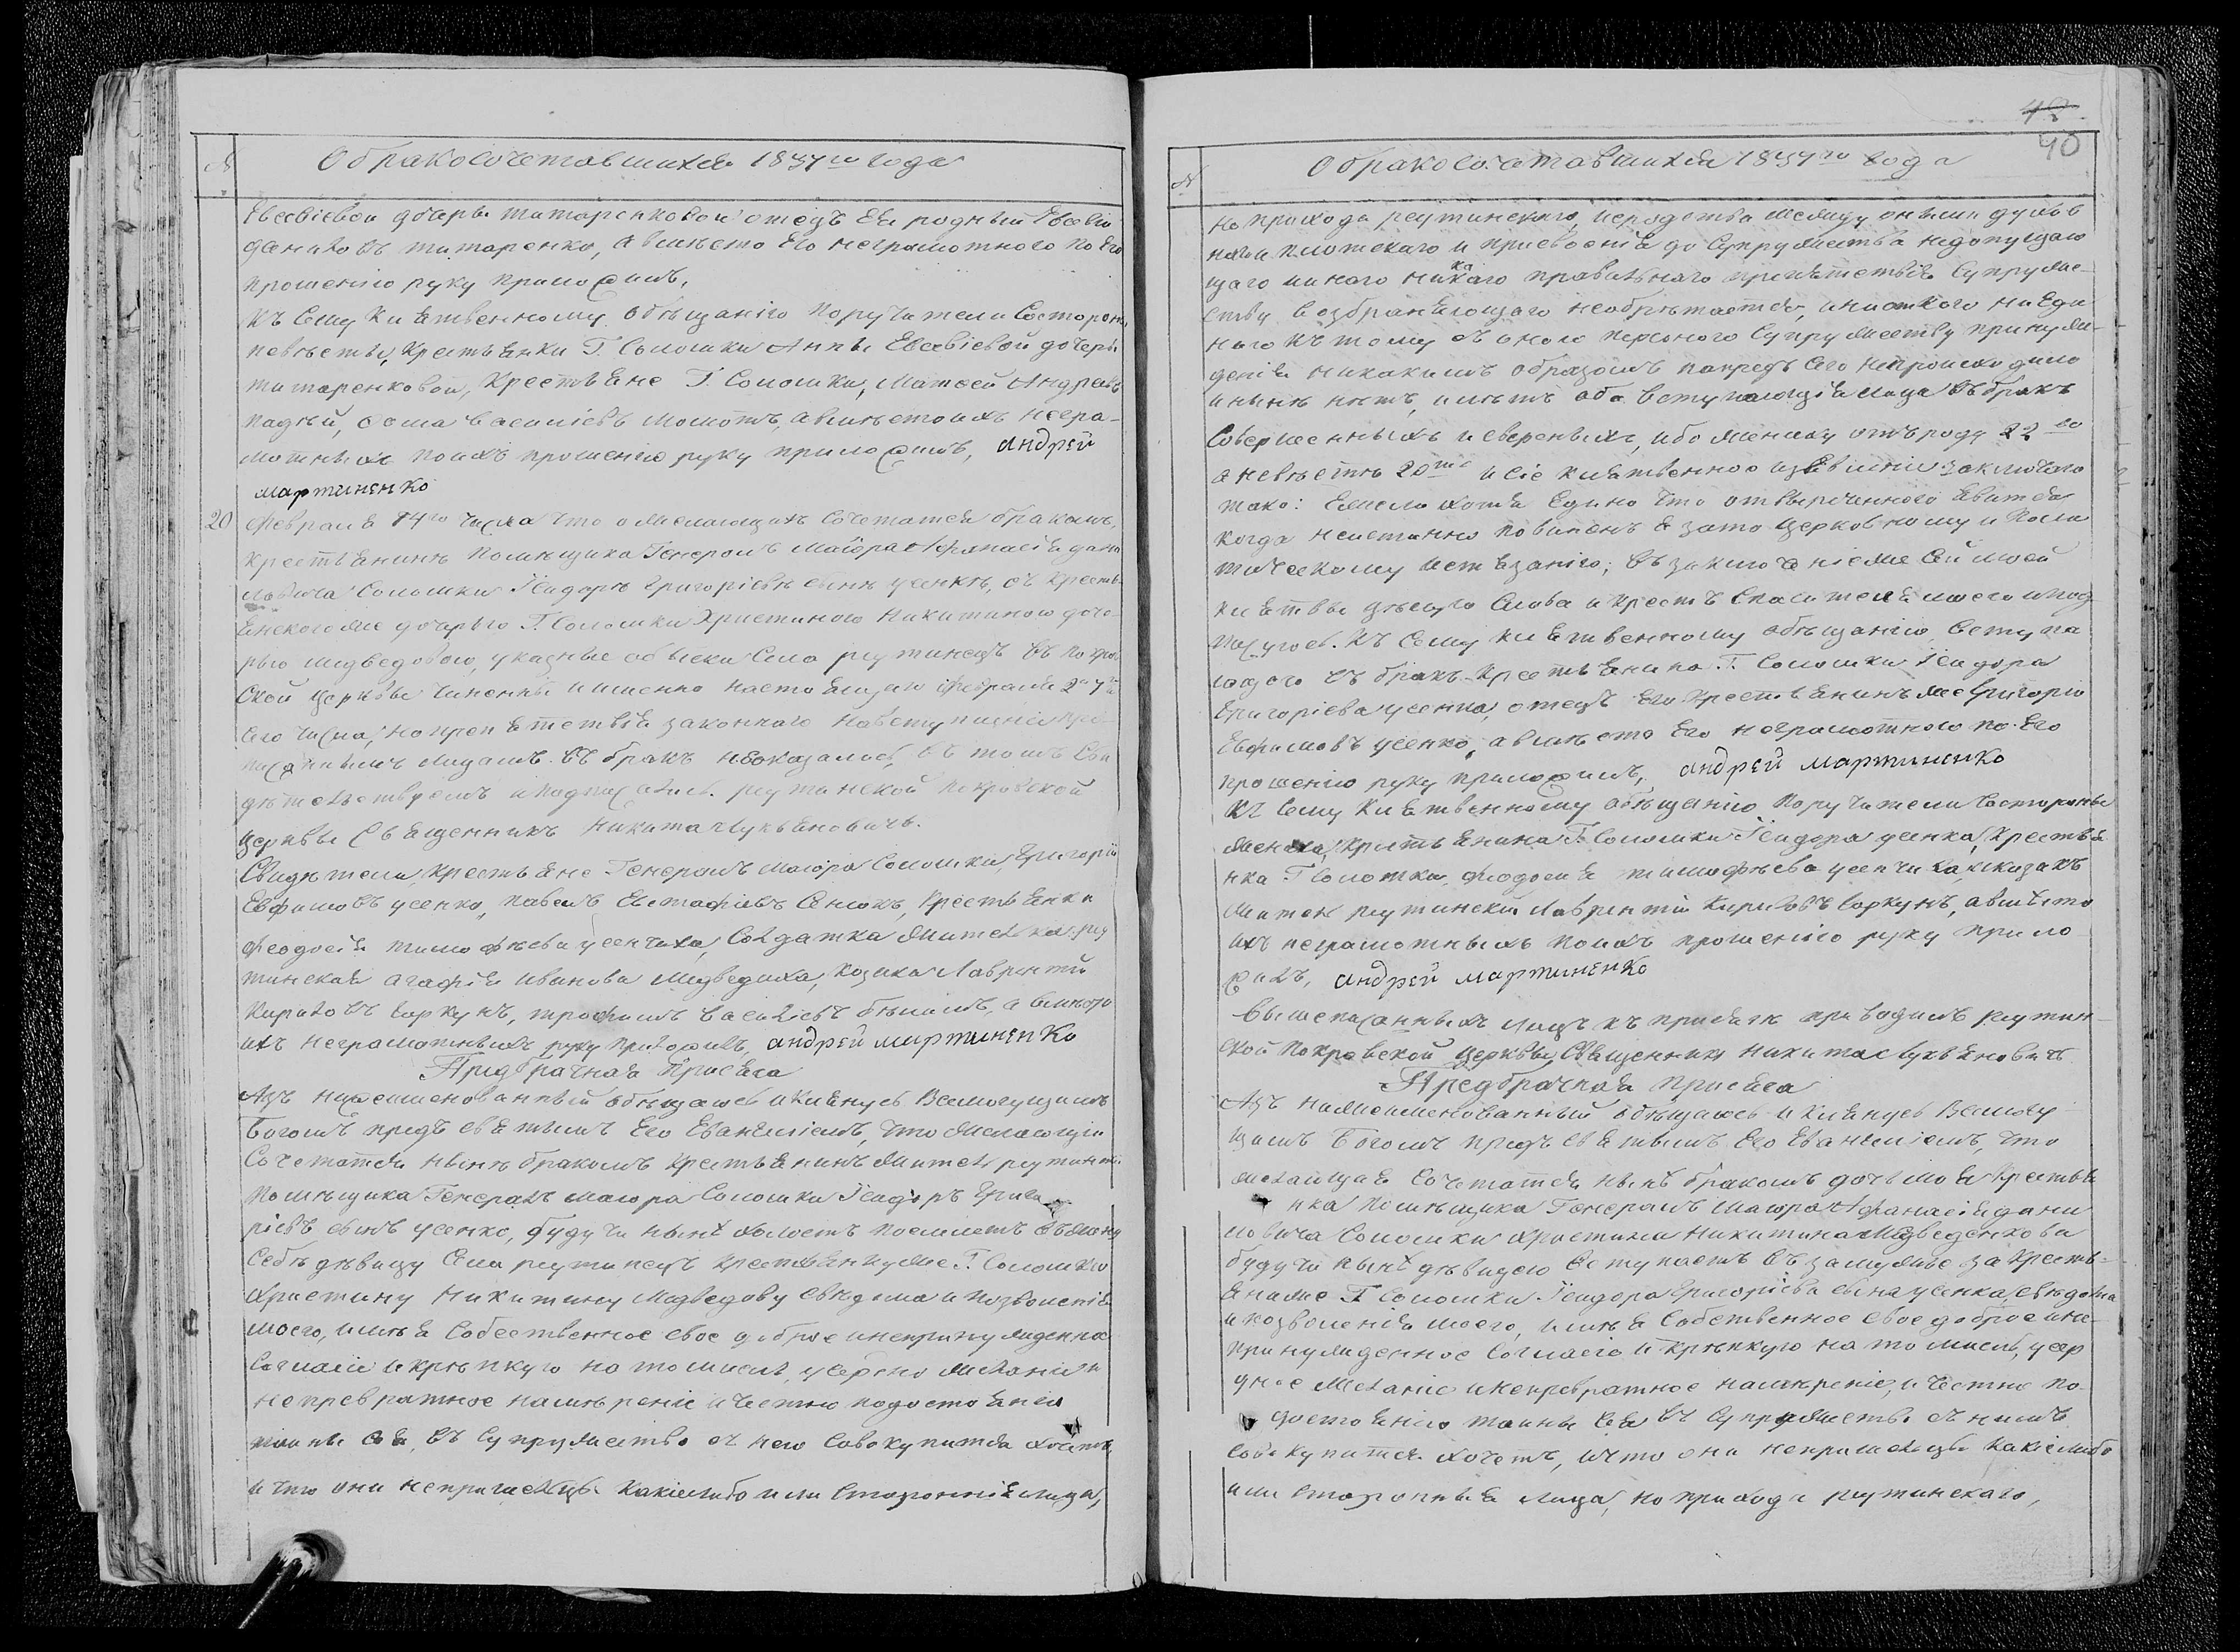 №
О бракосочетавшихся 1837го года
Евсевіевой дочеры титаренковой отецъ Ея родный Евсевій
даниловъ титаренко, авместо Его неграмотного по Его
прошенію руку приложилъ,
Къ Сему Клятвенному обещанію поручители Состороны
невѣсты, Крестьянки Г. Соломки Анны Евсевіевой дочеры
титаренковой, Крестьяне Г. Соломки, Матвей Андреевъ
падный, фома василіевъ момотъ, авместо ихъ негра-
мотныхъ поихъ прошенію руку приложилъ, андрей
мартиненко
20 февраля 14го числа что о желающихъ Сочетатся бракомъ,
Крестьянинѣ помѣщика Генералъ Маіора Афанасія дани
ловича Соломки Ісидорѣ Григоріевѣ сынѣ усенкѣ, съ крестья
янскогоже дочерью Г. Соломки Христиною Никитиною доче-
рью медведовою, указные обыски Села реутинецъ въ покров
Ской Церквы чиненны и именно настоящего февраля
Его числа, но препятствія законного ковступленію про-
писаннымъ лицамъ въ бракъ неоказалось, въ томъ Сви
дѣтельствуемъ иподписались. реутинской покровской
Церквы Священникъ Никита Лукъяновичъ.
Свидѣтели, крестьяне Генералъ Маіора Соломки, Григорій
Евфимовъ усенко, павелъ Евстафіевъ Сенюкъ, Крестьянки
феодосія тимофѣева усенчиха, Солдатка жителька реу
тинская агафія иванова медведиха, козаки Лаврентій
Кириловъ коркунъ, трофимъ василіевъ бѣлимъ, а вместо
ихъ неграмотныхъ руку приложилъ, андрей мартиненко
Предбрачная Присяга
Азъ нижеименованный обѣщаюсь иклянусь Всемогущимъ
Богомъ предъ святымъ Его Евангеліемъ, что желающій
Сочетатся нынѣ бракомъ крестьянинъ житель реутинскій
помѣщика Генералъ маіора Соломки Ісидоръ Григо
ріевъ сынъ усенко, будучи нынѣ холостъ поемлетъ въ жену
себѣ дѣвицу Села реутинецъ крестьянкуже Г. Соломки
Христину Никитину Медведову свѣдома и позволенія
моего, имѣя Собственное свое доброе инепринужденное
Согласіе икрѣпкую на то мысль, усердно желаніе и
непревратное намѣреніе и честно подостоянію
тайны сея, въ Супружество съ нею Совокупится хочетъ,
и что они непришельцы какіелибо или Сторонніе лица,
40
№
О бракосочетавшихся 1837го года
но прихода реутинского, иеродства между оными духов
наго и плотскаго и присвоенія до Супружества недопущаю
щаго иного никакаго правильнаго препятствія Супруже-
ству возбраняющаго необрѣтается, иниоткого ни Еди
наго къ тому съ оного персоного Супружеству принуж-
денія никакимъ образомъ напредъ сего непроисходило
и нынѣ нетъ, имѣтъ оба вступающія лица въ бракъ
Совершенныхъ исверенныхъ, ибо жениху отъ роду 22го
а невѣсте 20ть и сіе клятвенное изявленіе заключаю
тако: Ежели хотя Едино что отвыреченного явится
когда неистинно повиненъ я зато церковному и поли
тическому истязанію; въ заключеніеже сей моей
клятвы цѣлую Слова и крестъ Спасителя моего ипод
писуюсь. Къ Сему клятвенному обѣщанію ветупа
ющого въ бракъ крестьянина Г. Соломки Ісидора
Григоріева усенка, отецъ Его крестьянинъже Григорій
Евфимовъ усенко, авместо Его неграмотного по Его
прошенію руку приложилъ, андрей мартиненко
Къ Сему Клятвенному обѣщанію поручители Состороны
жениха, крестьянина Г. Соломки Ісидора усенка, крестья
нка Г Соломки, феодосія тимофѣева усенчиха, икозакъ
житель реутинскій Лаврентій Кириловъ коркунъ, авместо
ихъ неграмотныхъ поихъ прошенію руку прило
жилъ, андрей мартиненко
Вышеписанныхъ лицъ къ присягѣ приводилъ реутин-
ской покровской Церквы, Священникъ Никита Лукъяновичъ
Предбрачная Присяга
Азъ нижеименованный обѣщаюсь и клянусь Всемогу
щимъ Богомъ предъ святымъ Его Евангеліемъ, что
желающая Сочетатся нынѣ бракомъ дочь моя крестья
нка помѣщика Генералъ Маіора Афанасія дани
ловича Соломки Христина Никитина Медведенкова
будучи нынѣ дѣвицею вступаетъ въ замужье за кресть-
янаже Г Соломки Ісидора Григоріева сына усенка, свѣдома
и позволенія моего, имѣя Собственное свое доброе ине-
принужденное Согласіе и крѣпкую на то мысль, усер
дное желаніе инепревратное намѣреніе, и честно по
достоянію тайны сея въ Супружество съ нимъ
Совокупится хочетъ, ичто они непришельцы какіелибо
или Сторонныя лица, но прихода реутинскаго,